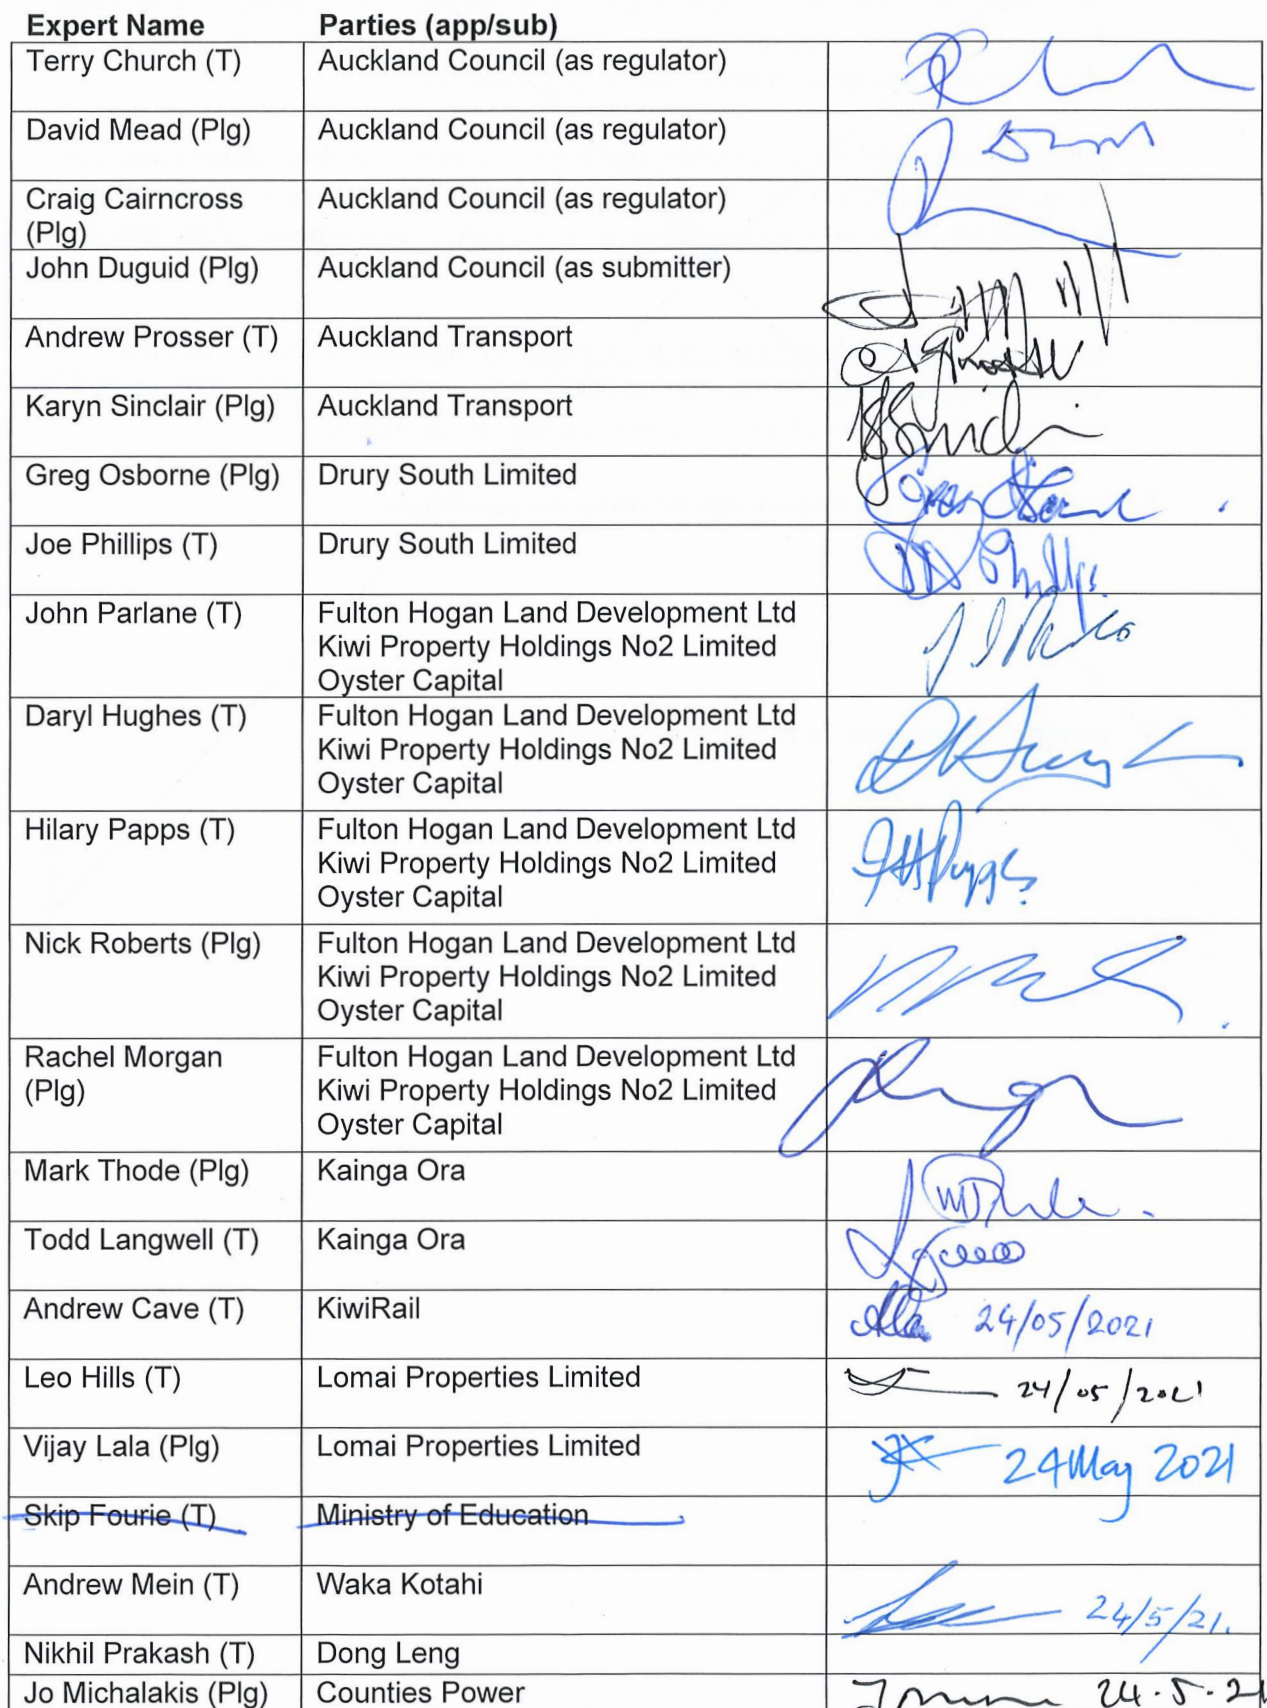 Expert Name Parties (app/sub)
Terry Church (T) Auckland Council (as regulator)
David Mead (Plg) Auckland Council (as regulator)
Craig Cairncross Auckland Council (as regulator)
(Plg)
John Duguid (Plg) Auckland Council (as submitter)
Andrew Prosser (T) Auckland Transport
Karyn Sinclair (Plg) Auckland Transport
Greg Osborne (Plg) Drury South Limited
Joe Phillips (T) Drury South Limited
John Parlane (T) Fulton Hogan Land Development Ltd
Kiwi Property Holdings No2 Limited
Oyster Capital
Daryl Hughes (T) Fulton Hogan Land Development Ltd
Kiwi Property Holdings No2 Limited
Oyster Capital
Hilary Papps (T) Fulton Hogan Land Development Ltd
Kiwi Property Holdings No2 Limited
Oyster Capital
Nick Roberts (Plg) Fulton Hogan Land Development Ltd
Kiwi Property Holdings No2 Limited
Oyster Capital
Rachel Morgan Fulton Hogan Land Development Ltd
(Plg) Kiwi Property Holdings No2 Limited
Oyster Capital
Mark Thode (Plg) Kainga Ora
Todd Langwell (T) Kainga Ora
Andrew Cave (T) KiwiRail 24/05/2021
Leo Hills (T) Lomai Properties Limited 24/05/2021
Vijay Lala (Plg) Lomai Properties Limited 24 May 2021
Skip Fourie (T) Ministry of Education
Andrew Mein (T) Waka Kotahi 24/5/21.
Nikhil Prakash (T) Dong Leng
Jo Michalakis (Plg) Counties Power 24.5.21